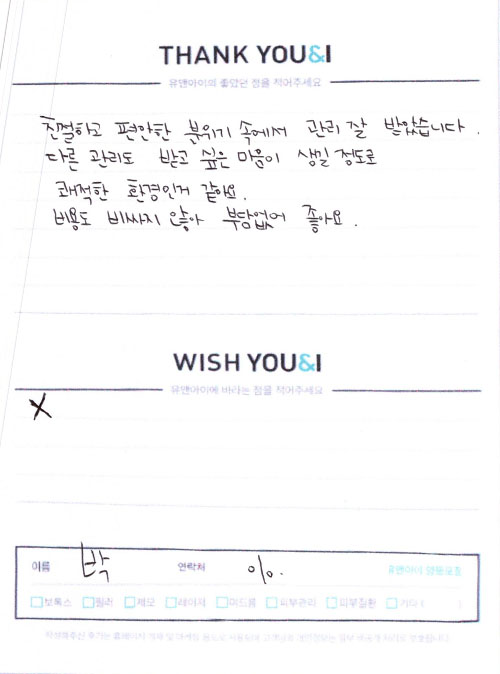 THANK YOU&I
유앤아이의 좋았던 점을 적어주세요
친절하고 편안한 분위기 속에서 관리 잘 받았습니다.
다른 관리도 받고 싶은 마음이 생길 정도로
쾌적한 환경인거 같아요.
비용도 비싸지 않아 부담없어 좋아요.
WISH YOU&I
유앤아이에 바라는 점을 적어주세요
X
이름 박 연락처 010. 유앤아이
보톡스 필러 제모 레이저 여드름 피부관리 피부질환 기타 ( )